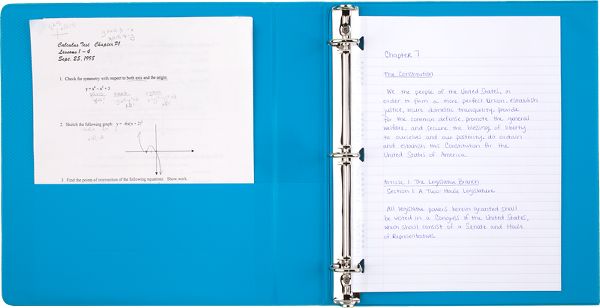 Calculus Test Chapter #1
Lessons 1 - 4
Sept. 25, 1995
1. Check for symmetry with respect to both axis and the origin.
2. Sketch the following graph:
3. Find the points of intersection of the following equations. Show work.
Chapter 7
The Constitution
We the people of the United States, in
order to form a more perfect union, establish
justice, insure domestic tranquility, provide
for the common defense, promote the general
welfare, and secure the blessings of liberty
to ourselves and our posterity, do ordain
and establish this Constitution for the
United States of America.
Article 1 The Legislative Branch
Section 1 A Two-House Legislature
All legislative powers herein granted shall
be vested in a Congress of the United States,
which shall consist of a Senate and House
of Representatives.